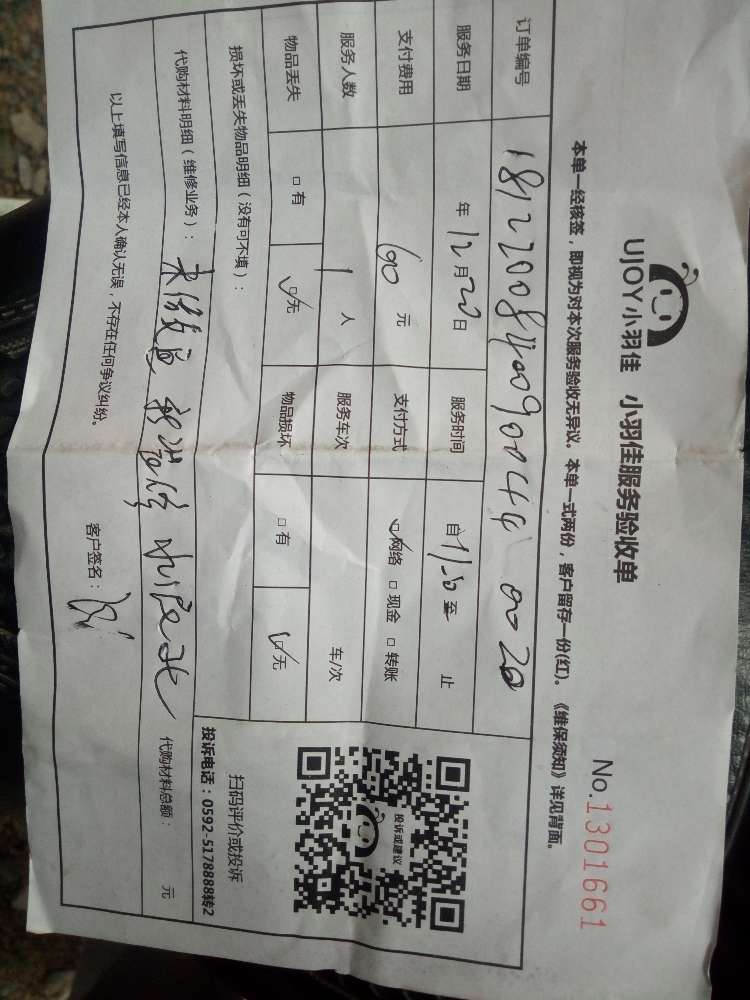 UJOY小羽佳 小羽佳服务验收单
No.1301661
本单一经核签，即视为对本次服务验收无异议。本单一式两份，客户留存一份(红)。《维保须知》详见背面。
订单编号
服务日期 年 12 月 20 日 服务时间 自 1/50 至 止
支付费用 60 元 支付方式 ☑网络 □现金 □转账
服务人数 1 人 服务车次 车/次
物品丢失 □有 ☑无 物品损坏 □有 ☑无
损坏或丢失物品明细（没有可不填）：
投诉或建议
扫码评价或投诉
投诉电话：0592-5178888转2
代购材料明细（维修业务）： 代购材料总额： 元
以上填写信息已经本人确认无误，不存在任何争议纠纷。
客户签名：